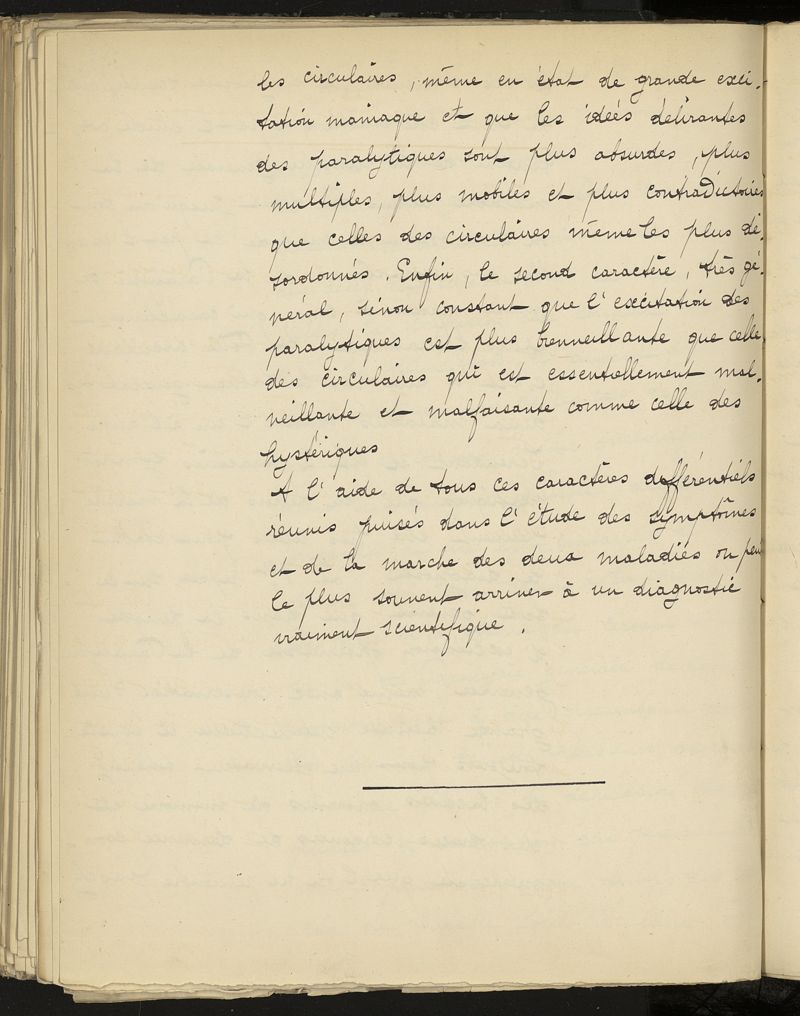 les circulaires, même en état de grande exci-
tation maniaque et que les idées délirantes
des paralytiques sont plus absurdes, plus
multiples, plus mobiles et plus contradictoires
que celles des circulaires même les plus dé-
sordonnés. Enfin, le second caractère, très gé-
néral, sinon constant que l'excitation des
paralytiques est plus bienveillante que celle
des circulaires qui est essentiellement mal-
veillante et malfaisante comme celle des
hystériques
A l'aide de tous ces caractères différentiels
réunis puisés dans l'étude des symptômes
et de la marche des deux maladies on peut
le plus souvent arriver à un diagnostic
vraiment scientifique.